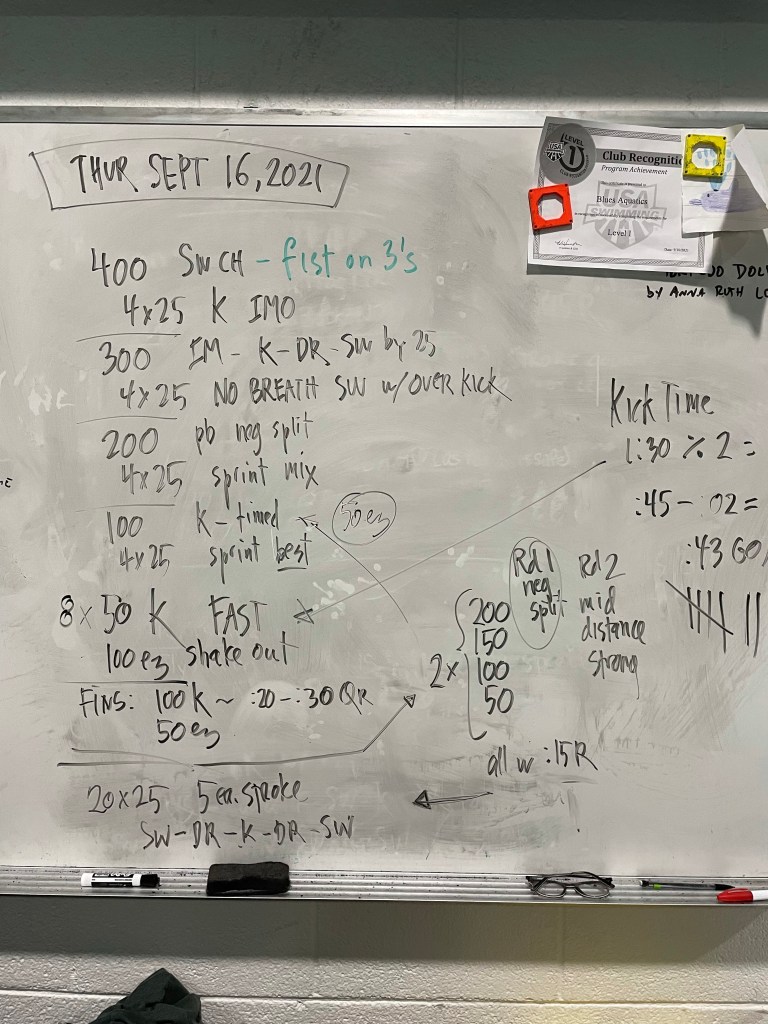 THUR SEPT 16, 2021
400 SWCH - fist on 3's
4x25 K IMO
300 IM - K-DR-SW by 25
4x25 NO BREATH SW w/OVER KICK
200 pb neg split
4x25 sprint mix
100 K - timed
50 ez
4x25 sprint best
8 x 50 K FAST
100 ez shake out
FINS: 100 K ~ :20-:30 QR
50 ez
20x25 5 ea. stroke
SW-DR-K-DR-SW
Rd 1
neg
split
Rd 2
mid
distance
strong
2x
200
150
100
50
all w :15R
Kick Time
1:30 % 2 =
:45 - :02 =
:43 GO
LEVEL
USA
1
CLUB RECOGNITION
Club Recognitio
Program Achievement
Blues Aquatics
USA
SWIMMING
Level 1
DOL
by ANNA RUTH LO